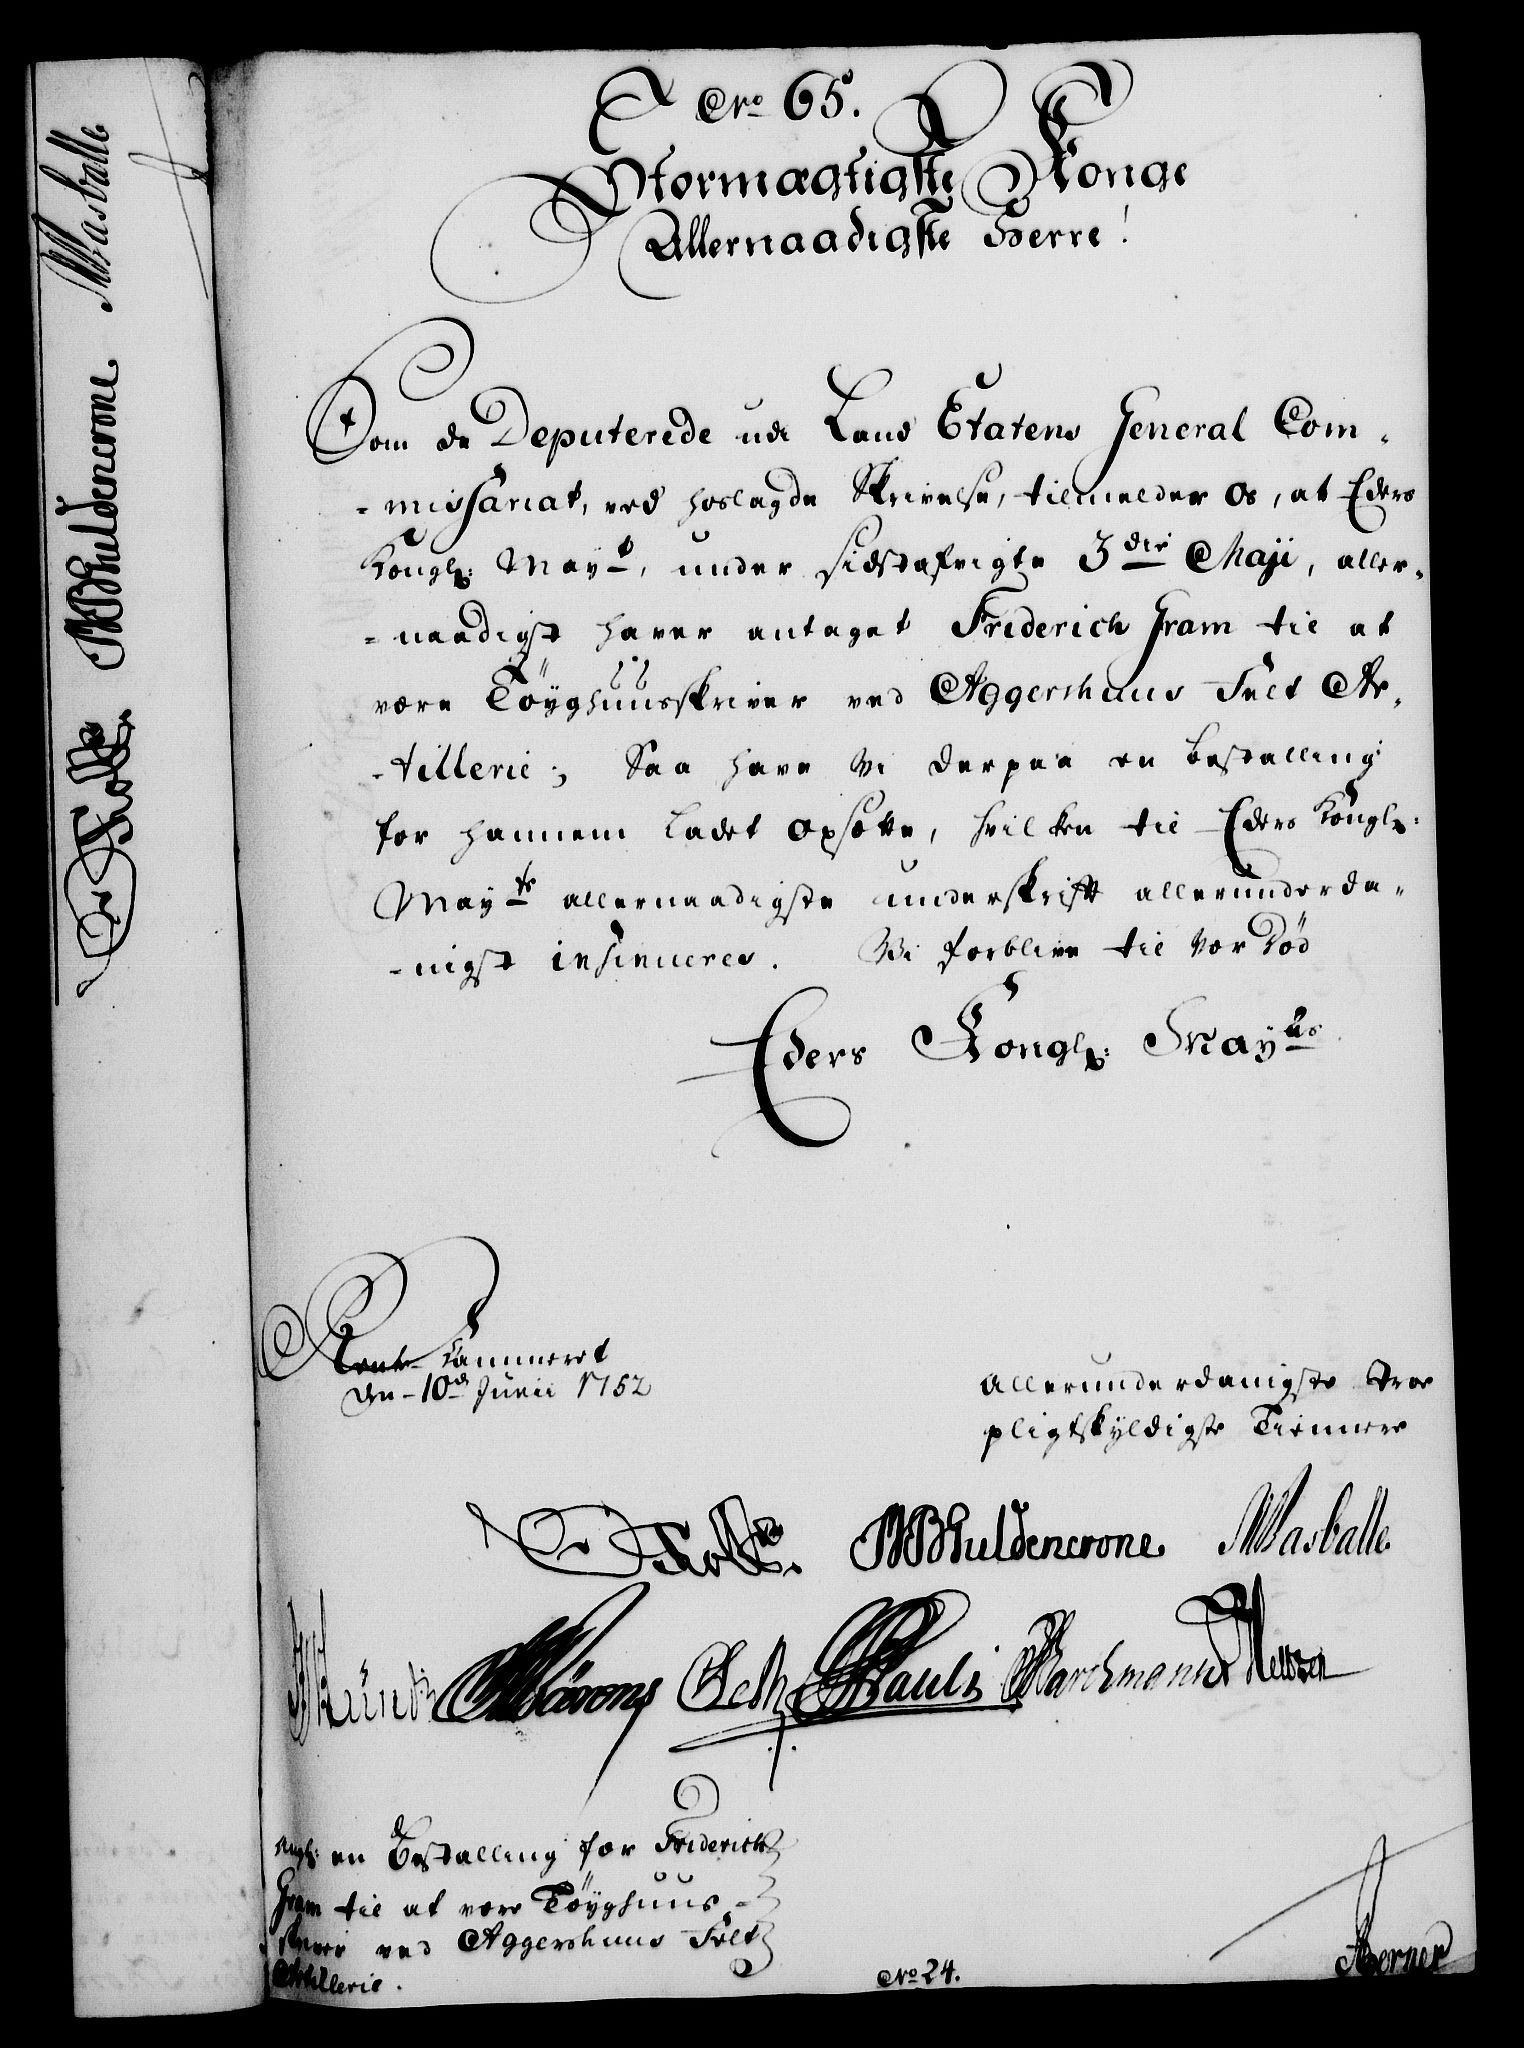 No 65.
Stormægtigste Konge
Allernaadigste Herre!
Som de Deputerede udi Land Etatens General Com-
-missariat, ved hoslagde Skrivelse, tilmelder os, at Eders
Kongl: Mayt, under sidstafvigte 3die Maji, aller-
-naadigst haver antaget Friderich Gram til at
være Töyghuusskriver ved Aggershuus Felt Ar-
-tillerie; Saa have Vi derpaa en bestalling
for hannem ladet opsætte, hvilken til Eders Kongl:
Mayts allernaadigste underskrift allerunderda-
-nigst insinueres. Vi forblive til vor Död
Eders Kongl: Mayts
Rente-Kammeret
den 10d Junii 1752
allerunderdanigste troe
pligtskyldigste Tiennere
Holst. MBGuldencrone Masballe
Pauli Barchmann
en Bestalling for Friderich
Gram til at være Töyghuus-
skriver ved Aggershuus Felt
Artillerie.
No 24.
Berner
MBGuldencrone Masballe